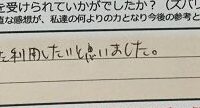 を受けられていかがでしたか？（ズバリ
直な感想が、私達の何よりの力となり今後の参考と
利用したいと思いました。